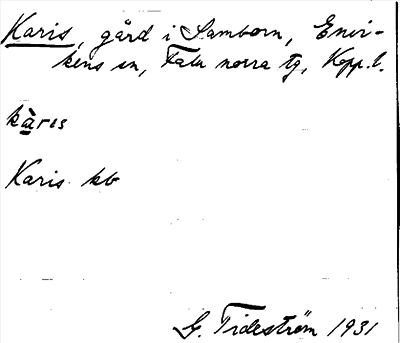 Karis, gård i Lamborn, Envi-
kens sn, Falu norra tg, Kopp. l.
kàrɪs
Karis kb
G. Tideström 1931